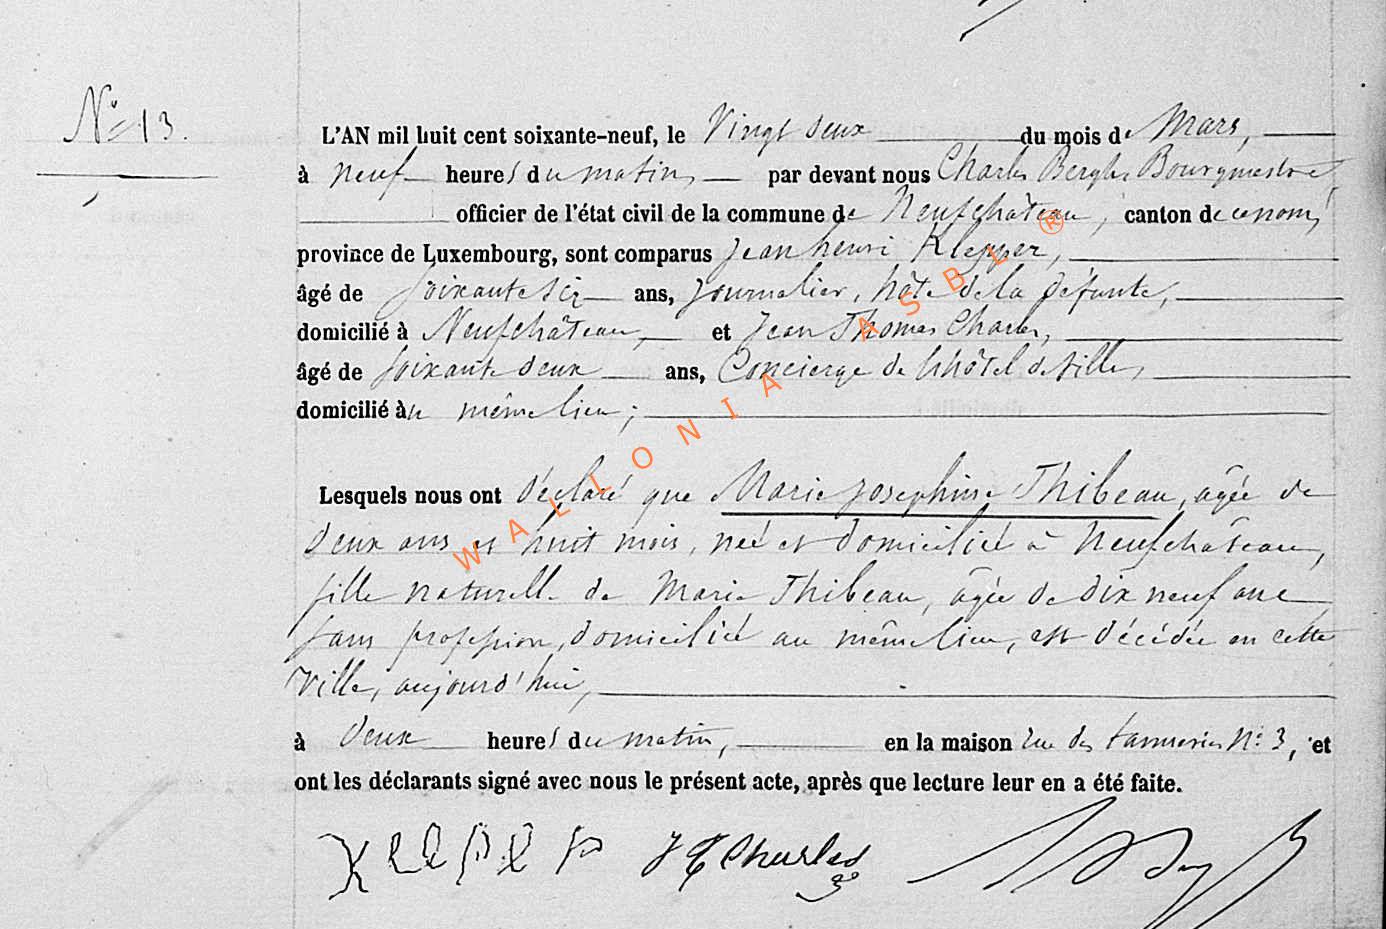 N° 13.
L'AN mil huit cent soixante-neuf, le Vingt deux du mois de Mars,
à neuf heures du matin, par devant nous Charles Berghs Bourgmestre
officier de l'état civil de la commune de Neufchâteau, canton de ce nom,
province de Luxembourg, sont comparus Jean henri Klepper,
âgé de soixante six ans, journalier, hôte de la défunte,
domicilié à Neufchâteau, et Jean Thomas Charles,
âgé de soixante deux ans, Concierge de l'hôtel de ville,
domicilié au même lieu ;
Lesquels nous ont déclaré que Marie Josephine Thibeau, agée de
deux ans et huit mois, née et domiciliée à Neufchâteau,
fille naturelle de Marie Thibeau, agée de dix neuf ans
sans profession, domiciliée au même lieu, est décédée en cette
Ville, aujourd'hui,
à deux heures du matin, en la maison rue des tanneries N° 3, et
ont les déclarants signé avec nous le présent acte, après que lecture leur en a été faite.
Klepper J T Charles
WALLONIA ASBL ®